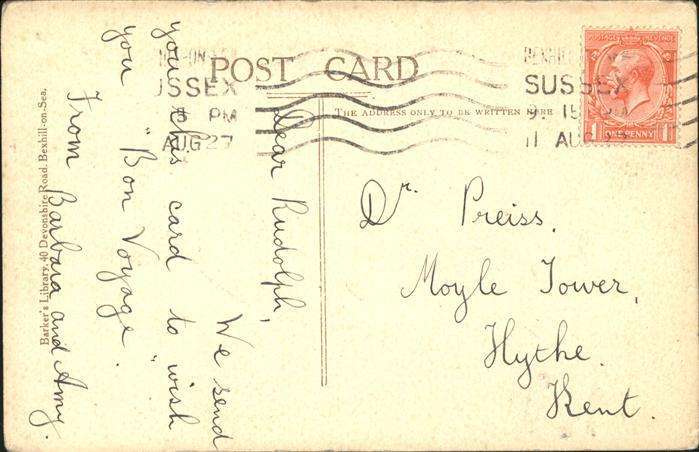 POST CARD
THE ADDRESS ONLY TO BE WRITTEN HERE
SUSSEX
11 AUG
SUSSEX
PM
AUG 27
ONE PENNY
Dear Rudolph,
We send
you this card to wish
you "Bon Voyage".
From Barbara and Amy.
Dr. Preiss.
Moyle Tower,
Hythe.
Kent.
Barker's Library, 40 Devonshire Road, Bexhill-on-Sea.